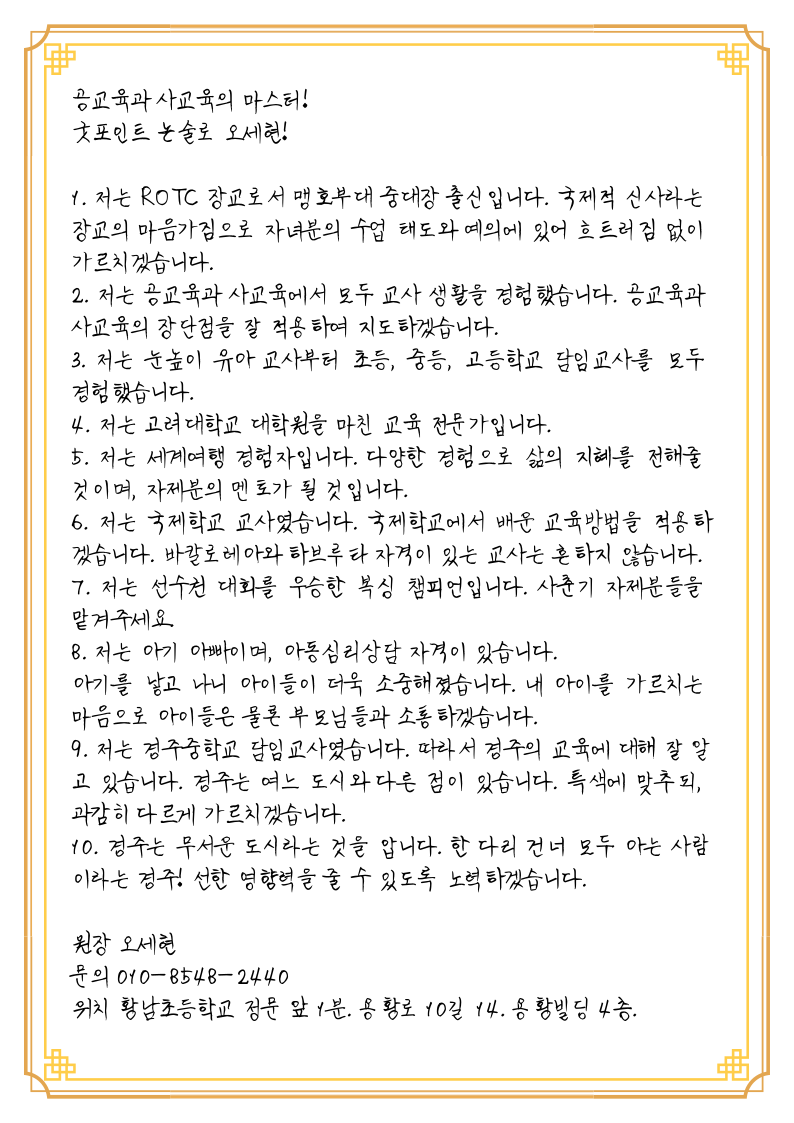 공교육과 사교육의 마스터!
굿포인트 논술로 오세현!
1. 저는 ROTC 장교로서 맹호부대 중대장 출신입니다. 국제적 신사라는
장교의 마음가짐으로 자녀분의 수업 태도와 예의에 있어 흐트러짐 없이
가르치겠습니다.
2. 저는 공교육과 사교육에서 모두 교사 생활을 경험했습니다. 공교육과
사교육의 장단점을 잘 적용하여 지도하겠습니다.
3. 저는 눈높이 유아 교사부터 초등, 중등, 고등학교 담임교사를 모두
경험했습니다.
4. 저는 고려대학교 대학원을 마친 교육 전문가입니다.
5. 저는 세계여행 경험자입니다. 다양한 경험으로 삶의 지혜를 전해줄
것이며, 자제분의 멘토가 될 것입니다.
6. 저는 국제학교 교사였습니다. 국제학교에서 배운 교육방법을 적용하
겠습니다. 바칼로레아와 하브루타 자격이 있는 교사는 흔하지 않습니다.
7. 저는 선수권 대회를 우승한 복싱 챔피언입니다. 사춘기 자제분들을
맡겨주세요
8. 저는 아기 아빠이며, 아동심리상담 자격이 있습니다.
아기를 낳고 나니 아이들이 더욱 소중해졌습니다. 내 아이를 가르치는
마음으로 아이들은 물론 부모님들과 소통하겠습니다.
9. 저는 경주중학교 담임교사였습니다. 따라서 경주의 교육에 대해 잘 알
고 있습니다. 경주는 여느 도시와 다른 점이 있습니다. 특색에 맞추되,
과감히 다르게 가르치겠습니다.
10. 경주는 무서운 도시라는 것을 압니다. 한 다리 건너 모두 아는 사람
이라는 경주! 선한 영향력을 줄 수 있도록 노력하겠습니다.
원장 오세현
문의 010-8548-2440
위치 황남초등학교 정문 앞 1분. 용황로 10길 14. 용황빌딩 4층.